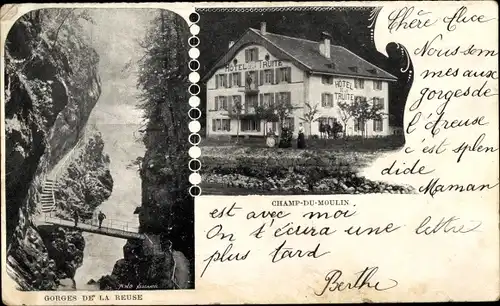 HOTEL DE LA TRUITE
HÔTEL
DE LA
TRUITE
CHAMP-DU-MOULIN
GORGES DE LA REUSE
Chère Alice
Nous som
mes aux
gorges de
l'Areuse
c'est splen
dide
Maman
est avec moi
On t'écrira une lettre
plus tard
Berthe